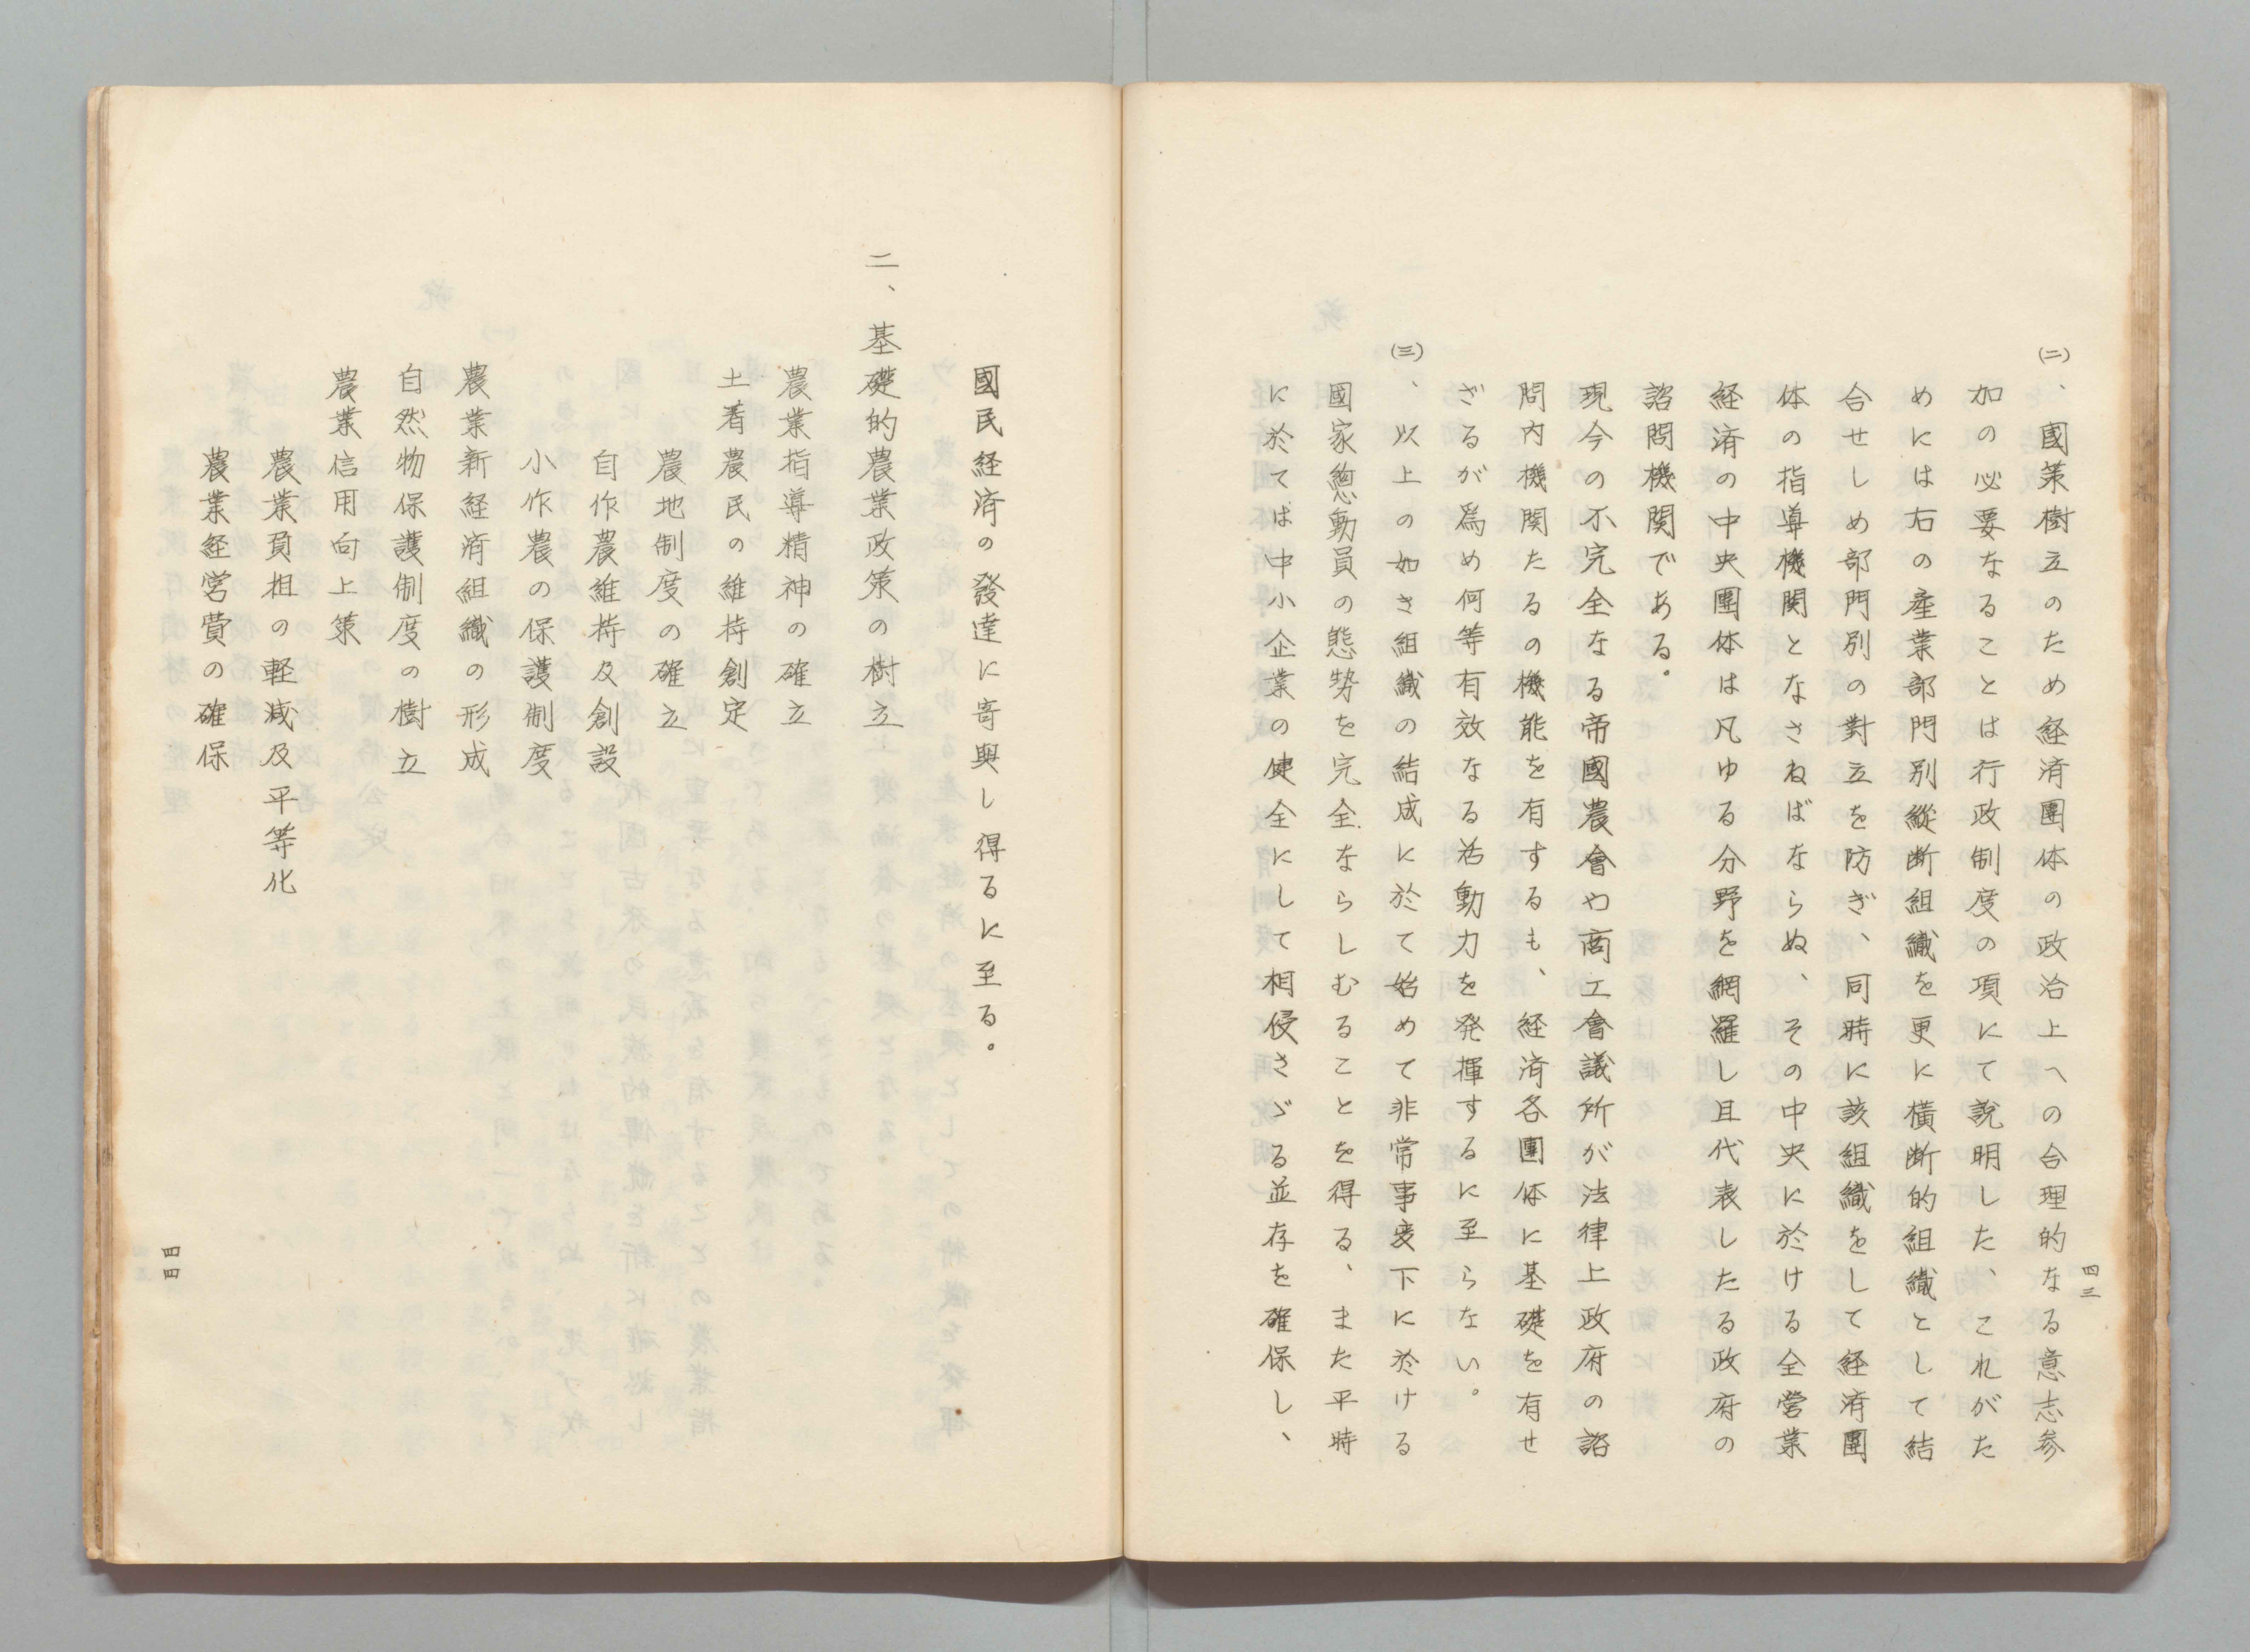 四三
(二)、國策樹立のため経済團体の政治上への合理的なる意志参
加の必要なることは行政制度の項にて説明した、これがた
めには右の産業部門別縦断組織を更に横断的組織として結
合せしめ部門別の對立を防ぎ、同時に該組織をして経済團
体の指導機関となさねばならぬ、その中央に於ける全営業
経済の中央團体は凡ゆる分野を網羅し且代表したる政府の
諮問機関である。
現今の不完全なる帝國農會や商工會議所が法律上政府の諮
問内機関たるの機能を有するも、経済各團体に基礎を有せ
ざるが爲め何等有效なる活動力を発揮するに至らない。
(三)、以上の如き組織の結成に於て始めて非常事変下に於ける
國家總動員の態勢を完全ならしむることを得る、また平時
に於ては中小企業の健全にして相侵さゞる並存を確保し、
國民経済の發達に寄與し得るに至る。
二、基礎的農業政策の樹立
農業指導精神の確立
土着農民の維持創定
農地制度の確立
自作農維持及創設
小作農の保護制度
農業新経済組織の形成
自然物保護制度の樹立
農業信用向上策
農業負担の軽減及平等化
農業経営費の確保
四四